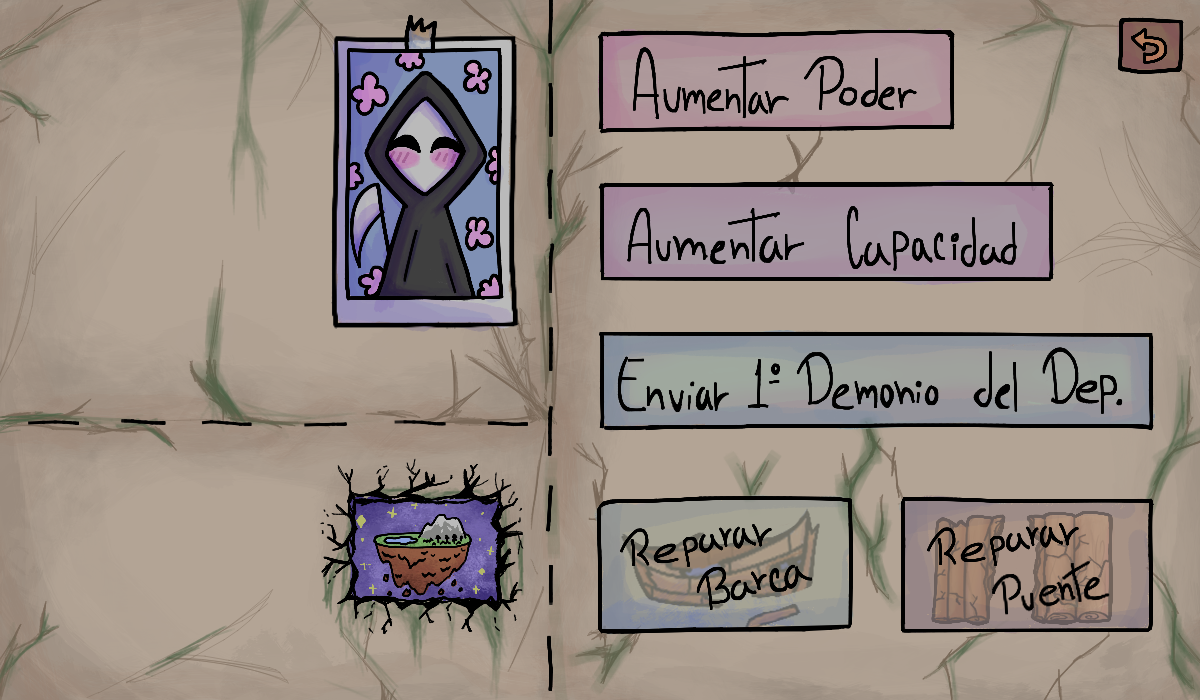 Aumentar Poder
Aumentar Capacidad
Enviar 1º Demonio del Dep.
Reparar
Barca
Reparar
Puente